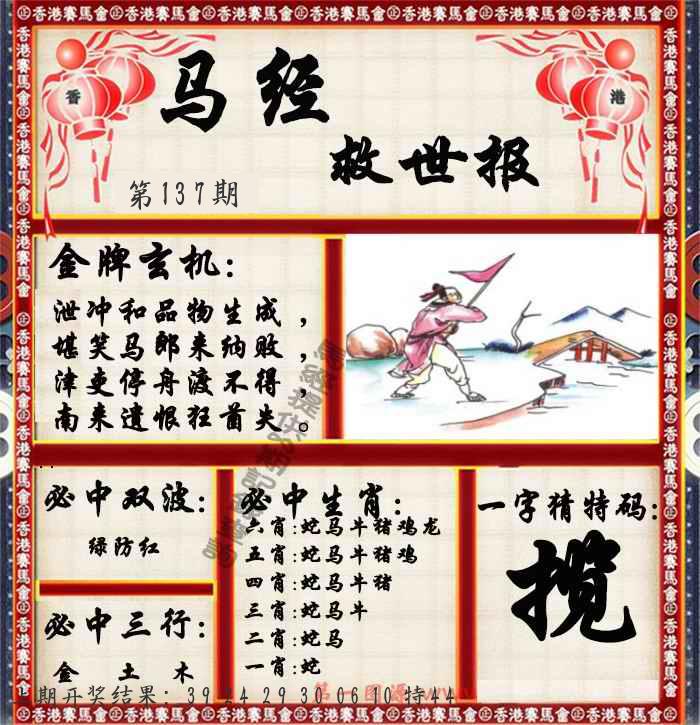 香港賽馬會
香
港
马经
救世报
第137期
金牌玄机:
泄冲和品物生成，
堪笑马郎来纳败，
津吏停舟渡不得，
南来遗恨狂酋失。
必中双波:
绿防红
必中三行:
金 土 木
必中生肖:
六肖:蛇马牛猪鸡龙
五肖:蛇马牛猪鸡
四肖:蛇马牛猪
三肖:蛇马牛
二肖:蛇马
一肖:蛇
一字猜特码:
揽
期开奖结果: 39 24 29 30 06 10 特44